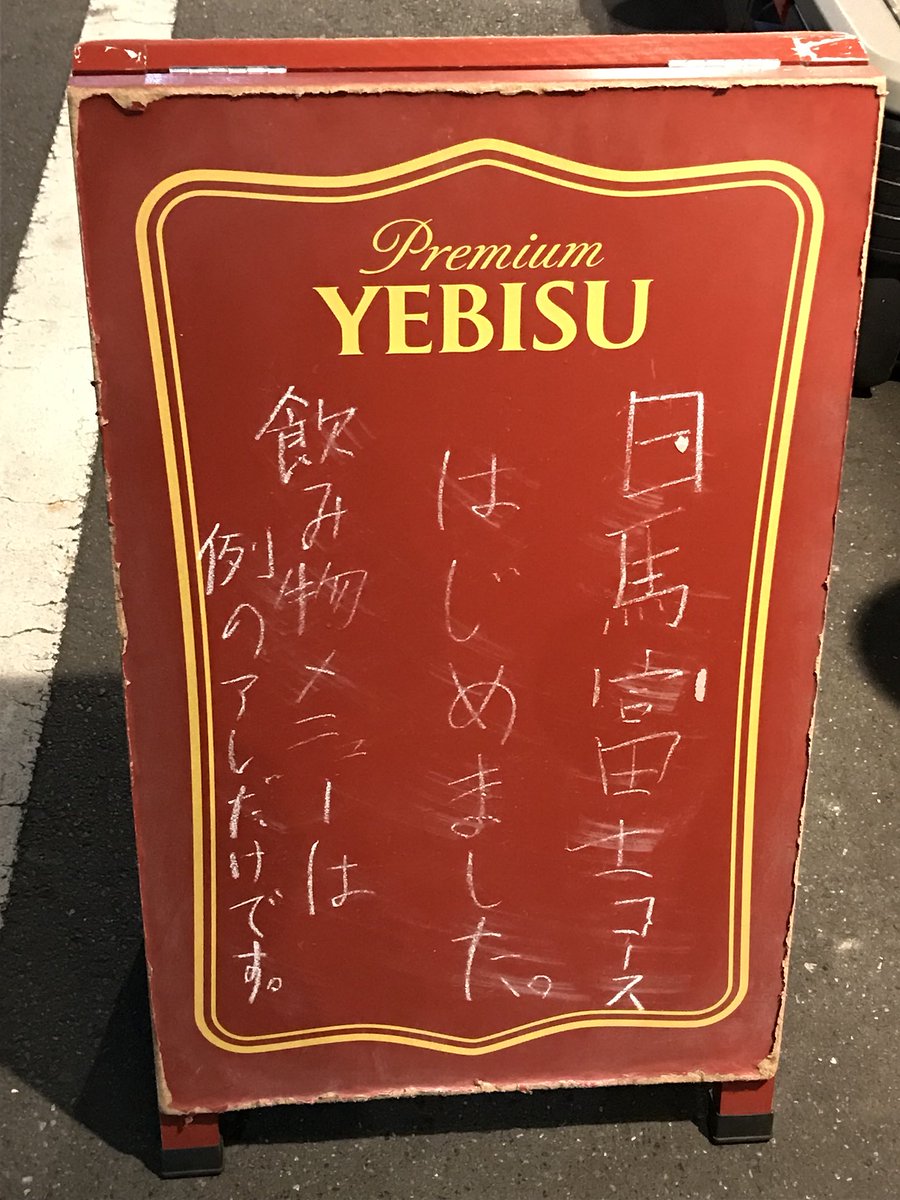 Premium
YEBISU
日馬富士コース
はじめました。
飲み物メニューは
例のアレだけです。